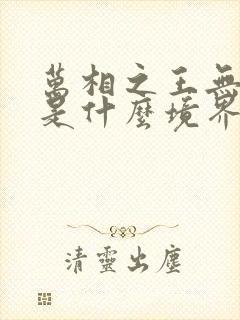 萬相之王無
是什麼境界
清靈出塵